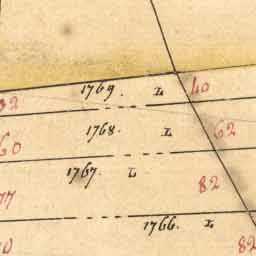 1769. L 40
92
1768. L 62
60
1767. L 82
77
1766. L 82